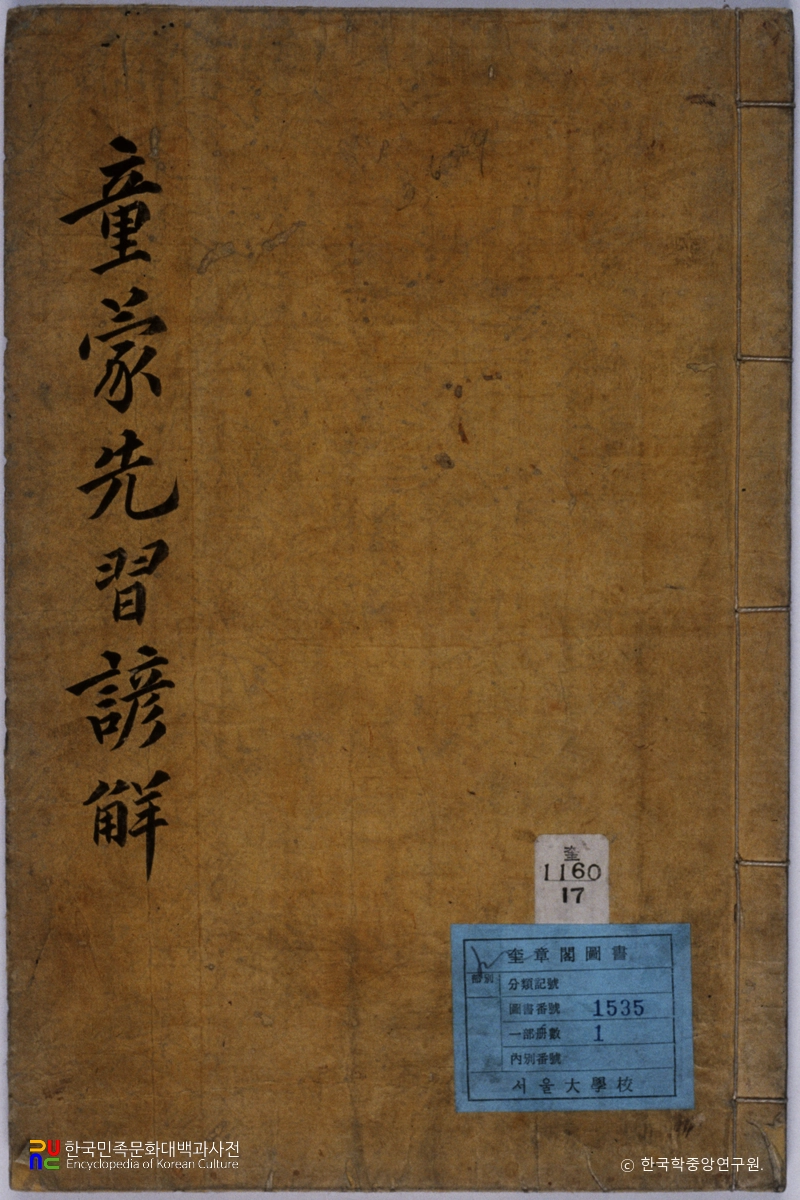 童蒙先習諺觧
奎
1160
17
奎章閣圖書
分類記號
圖書番號 1535
一部册數 1
內別番號
서울大學校
한국민족문화대백과사전
Encyclopedia of Korean Culture
© 한국학중앙연구원.